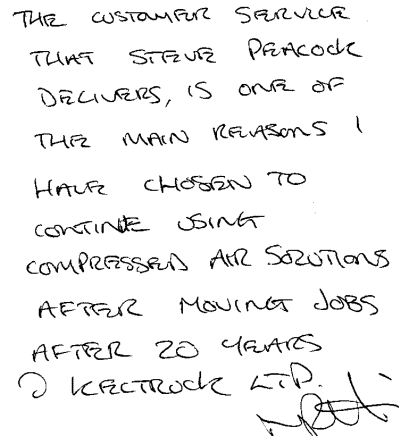 THE CUSTOMER SERVICE
THAT STEVE PEACOCK
DELIVERS, IS ONE OF
THE MAIN REASONS I
HAVE CHOSEN TO
CONTINE USING
COMPRESSED AIR SOLUTIONS
AFTER MOVING JOBS
AFTER 20 YEARS
LTD.